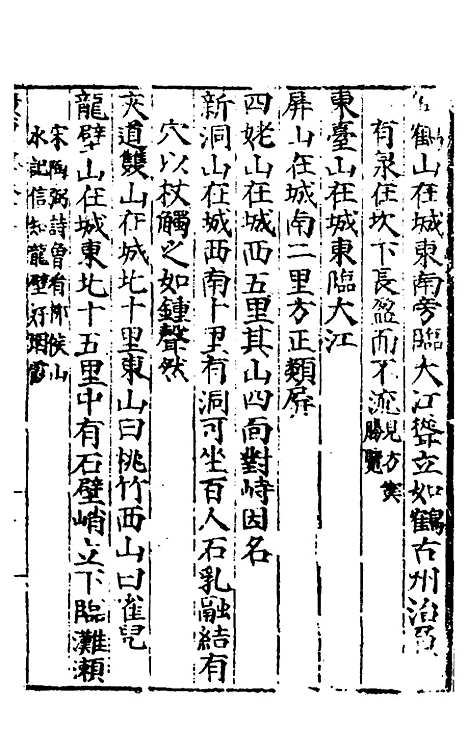 鶴山在城東南旁臨大江聳立如鶴古州治
有泉在坎下長盈而不流見方輿勝覽
東臺山在城東臨大江
屏山在城南二里方正類屏
四姥山在城西五里其山四面對峙因名
新洞山在城西南十里有洞可坐百人石乳融結有
穴以杖觸之如鍾聲然
夾道雙山在城北十里東山曰桃竹西山曰雀兒
龍壁山在城東北十五里中有石壁峭立下臨灘瀨
宋陶弼詩曾看柳侯山
水記信知龍壁好烟霞